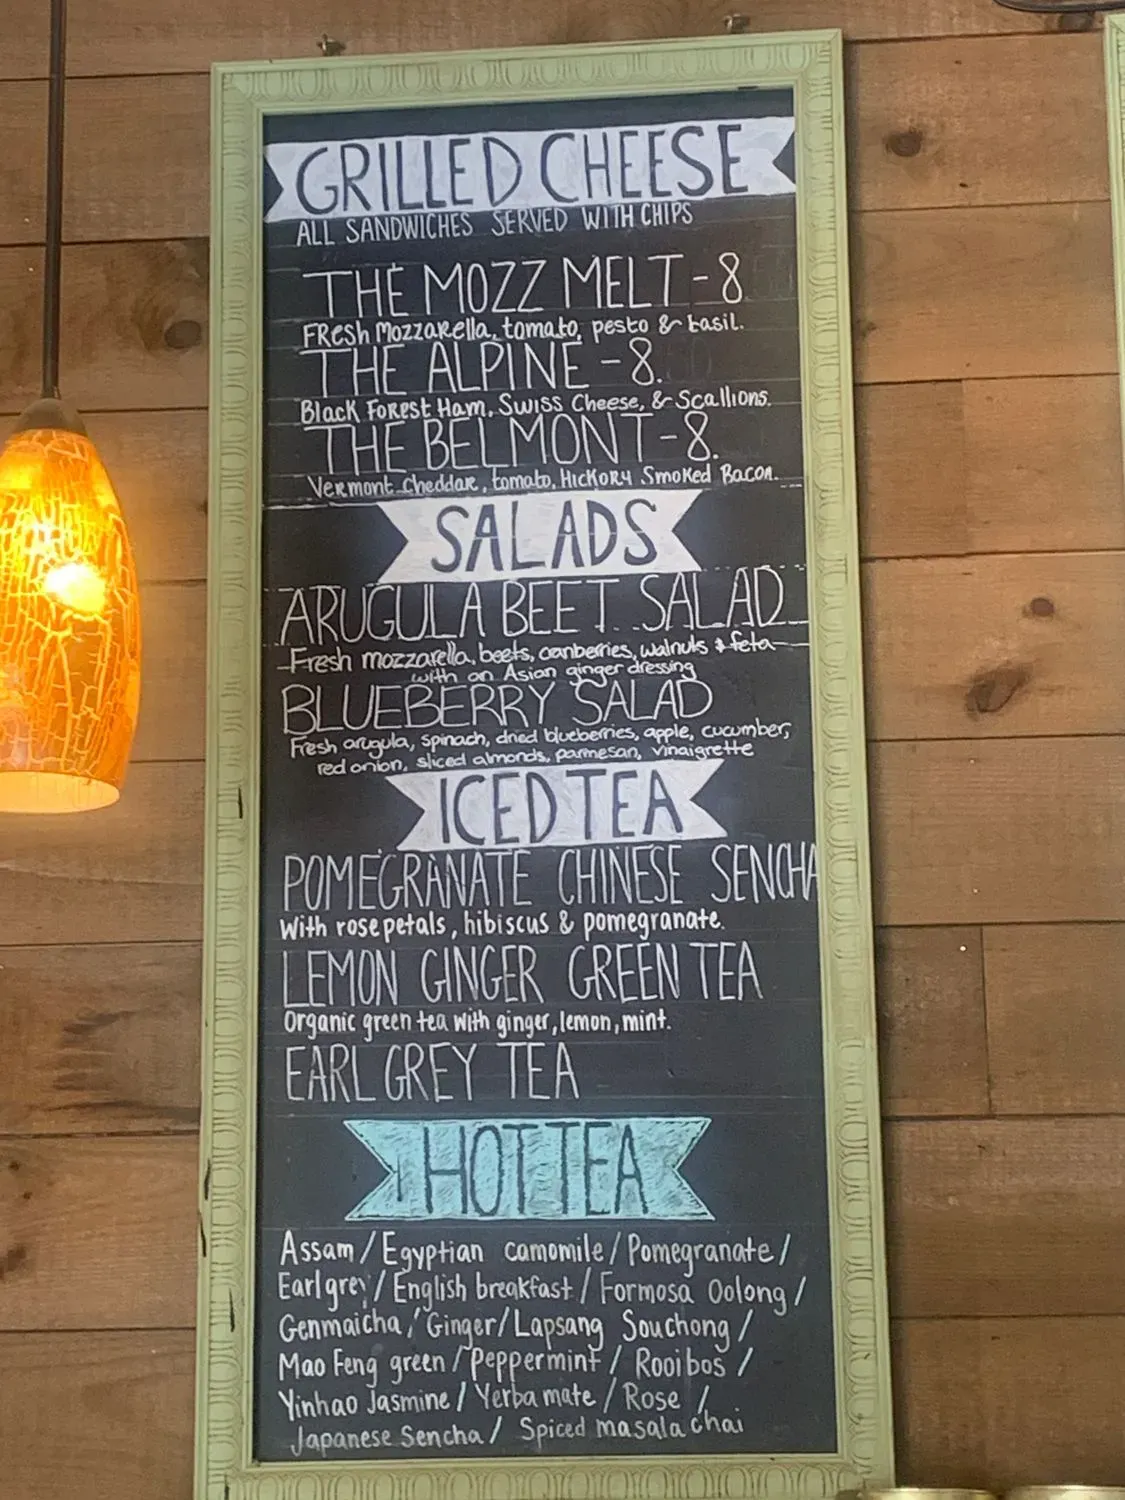 GRILLED CHEESE
ALL SANDWICHES SERVED WITH CHIPS
THE MOZZ MELT - 8
FRESH MOZZARELLA, tomato, pesto & basil.
THE ALPINE - 8.
Black FOREST HAM, SWISS CHEESE, & SCALLIONS.
THE BELMONT - 8.
VERMONT Cheddar, tomato, HICKORY SMOKED BACON.
SALADS
ARUGULA BEET SALAD
Fresh mozzarella, beets, cranberries, walnuts & feta
with an Asian ginger dressing
BLUEBERRY SALAD
Fresh arugula, spinach, dried blueberries, apple, cucumber,
red onion, sliced almonds, parmesan, vinaigrette
ICED TEA
POMEGRANATE CHINESE SENCHA
With rose petals, hibiscus & pomegranate.
LEMON GINGER GREEN TEA
Organic green tea with ginger, lemon, mint.
EARL GREY TEA
HOT TEA
Assam / Egyptian camomile / Pomegranate /
Earl grey / English breakfast / Formosa Oolong /
Genmaicha / Ginger / Lapsang Souchong /
Mao Feng green / Peppermint / Rooibos /
Yinhao Jasmine / Yerba mate / Rose /
Japanese Sencha / Spiced masala chai